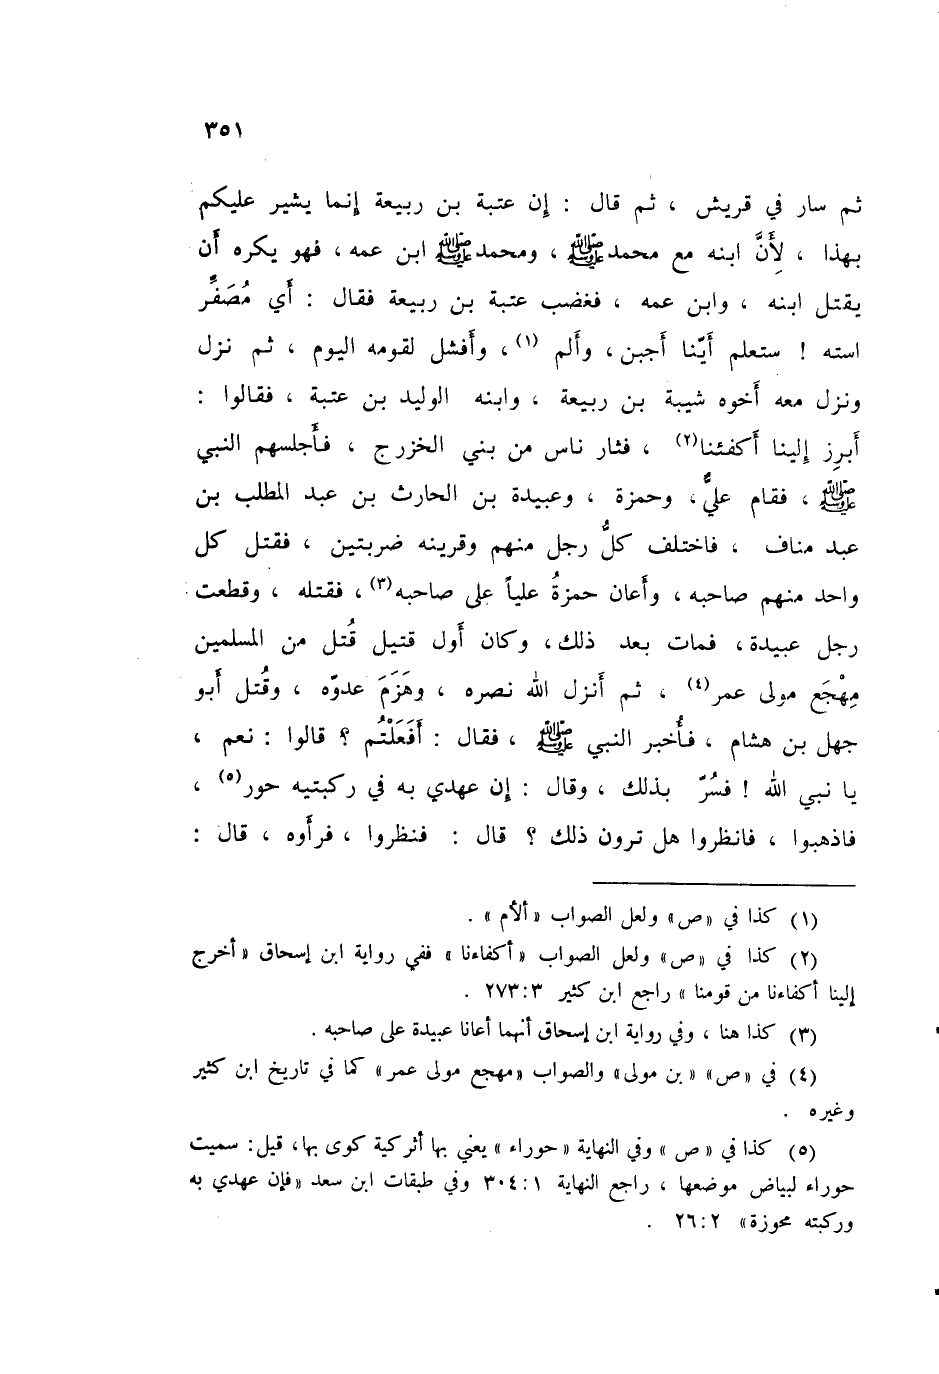 ٣٥١
ثم سار في قريش ، ثم قال : إن عتبة بن ربيعة إنما يشير عليكم
بهذا ، لِأَنَّ ابنه مع محمد ﷺ ، ومحمد ﷺ ابن عمه ، فهو يكره أَن
يقتل ابنه ، وابن عمه ، فغضب عتبة بن ربيعة فقال : أَي مُصَفِّر
استه ! ستعلم أَيّنا أَجبن ، وأَلم (١) ، وأَفشل لقومه اليوم ، ثم نزل
ونزل معه أَخوه شيبة بن ربيعة ، وابنه الوليد بن عتبة ، فقالوا :
أَبرِز إلينا أَكفئنا(٢) ، فثار ناس من بني الخزرج ، فأَجلسهم النبي
ﷺ ، فقام عليٌّ ، وحمزة ، وعبيدة بن الحارث بن عبد المطلب بن
عبد مناف ، فاختلف كلُّ رجل منهم وقرينه ضربتين ، فقتل كل
واحد منهم صاحبه ، وأَعان حمزةُ علياً على صاحبه(٣) ، فقتله ، وقطعت
رجل عبيدة ، فمات بعد ذلك ، وكان أَول قتيل قُتل من المسلمين
مِهْجَع مولى عمر(٤) ، ثم أَنزل الله نصره ، وهَزَمَ عدوّه ، وقُتل أَبو
جهل بن هشام ، فأُخبر النبي ﷺ ، فقال : أَفَعَلْتُم ؟ قالوا : نعم ،
يا نبي الله ! فسُرّ بذلك ، وقال : إن عهدي به في ركبتيه حور(٥) ،
فاذهبوا ، فانظروا هل ترون ذلك ؟ قال : فنظروا ، فرأَوه ، قال :
(١) كذا في «ص» ولعل الصواب «ألأم» .
(٢) كذا في «ص» ولعل الصواب «أكفاءنا» ففي رواية ابن إسحاق «أخرج
إلينا أكفاءنا من قومنا» راجع ابن كثير ٣ : ٢٧٣ .
(٣) كذا هنا ، وفي رواية ابن إسحاق أنهما أعانا عبيدة على صاحبه .
(٤) في «ص» «بن مولى» والصواب «مهجع مولى عمر» كما في تاريخ ابن كثير
وغيره .
(٥) كذا في «ص» وفي النهاية «حوراء» يعني بها أثر كية كوى بها ، قيل : سميت
حوراء لبياض موضعها ، راجع النهاية ١ : ٣٠٤ وفي طبقات ابن سعد «فإن عهدي به
وركبته محوزة» ٢ : ٢٦ .